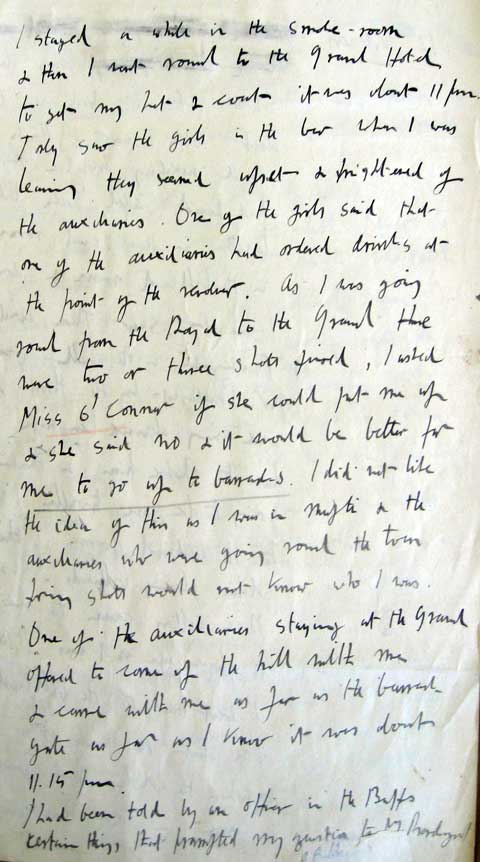 I stayed a while in the smoke-room
& then I went round to the Grand Hotel
to get my hat & coat it was about 11 pm.
I only saw the girls in the bar when I was
leaving they seemed upset & frightened of
the auxiliaries. One of the girls said that
one of the auxiliaries had ordered drinks at
the point of the revolver. As I was going
round from the Royal to the Grand there
were two or three shots fired, I asked
Miss O'Connor if she could put me up
& she said no & it would be better for
me to go up to barracks. I did not like
the idea of this as I was in mufti & the
auxiliaries who were going round the town
firing shots would not know who I was.
One of the auxiliaries staying at the Grand
offered to come up the hill with me
& came with me as far as the barrack
gate as far as I know it was about
11.15 pm.
I had been told by an officer in the Buffs
certain things that prompted my question to Mr